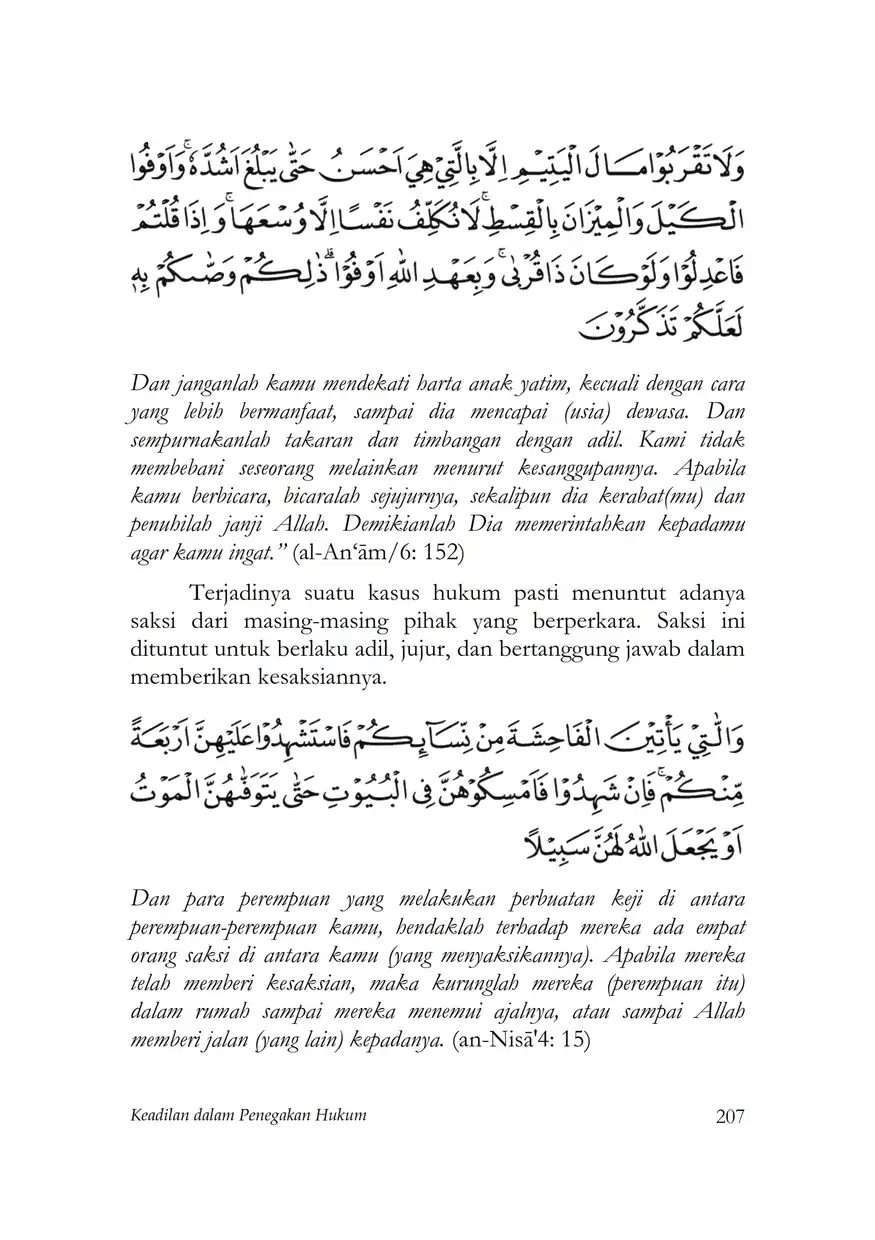 وَلَا تَقْرَبُوْا مَالَ الْيَتِيْمِ اِلَّا بِالَّتِيْ هِيَ اَحْسَنُ حَتّٰى يَبْلُغَ اَشُدَّهٗ ۚ وَاَوْفُوا
الْكَيْلَ وَالْمِيْزَانَ بِالْقِسْطِ ۚ لَا نُكَلِّفُ نَفْسًا اِلَّا وُسْعَهَا ۚ وَاِذَا قُلْتُمْ
فَاعْدِلُوْا وَلَوْ كَانَ ذَا قُرْبٰى ۚ وَبِعَهْدِ اللّٰهِ اَوْفُوْا ۗ ذٰلِكُمْ وَصّٰىكُمْ بِهٖ
لَعَلَّكُمْ تَذَكَّرُوْنَ
Dan janganlah kamu mendekati harta anak yatim, kecuali dengan cara
yang lebih bermanfaat, sampai dia mencapai (usia) dewasa. Dan
sempurnakanlah takaran dan timbangan dengan adil. Kami tidak
membebani seseorang melainkan menurut kesanggupannya. Apabila
kamu berbicara, bicaralah sejujurnya, sekalipun dia kerabat(mu) dan
penuhilah janji Allah. Demikianlah Dia memerintahkan kepadamu
agar kamu ingat.” (al-An‘ām/6: 152)
Terjadinya suatu kasus hukum pasti menuntut adanya
saksi dari masing-masing pihak yang berperkara. Saksi ini
dituntut untuk berlaku adil, jujur, dan bertanggung jawab dalam
memberikan kesaksiannya.
وَالّٰتِيْ يَأْتِيْنَ الْفَاحِشَةَ مِنْ نِّسَاۤىِٕكُمْ فَاسْتَشْهِدُوْا عَلَيْهِنَّ اَرْبَعَةً
مِّنْكُمْ ۚ فَاِنْ شَهِدُوْا فَاَمْسِكُوْهُنَّ فِى الْبُيُوْتِ حَتّٰى يَتَوَفّٰىهُنَّ الْمَوْتُ
اَوْ يَجْعَلَ اللّٰهُ لَهُنَّ سَبِيْلًا
Dan para perempuan yang melakukan perbuatan keji di antara
perempuan-perempuan kamu, hendaklah terhadap mereka ada empat
orang saksi di antara kamu (yang menyaksikannya). Apabila mereka
telah memberi kesaksian, maka kurunglah mereka (perempuan itu)
dalam rumah sampai mereka menemui ajalnya, atau sampai Allah
memberi jalan (yang lain) kepadanya. (an-Nisā'4: 15)
Keadilan dalam Penegakan Hukum 207